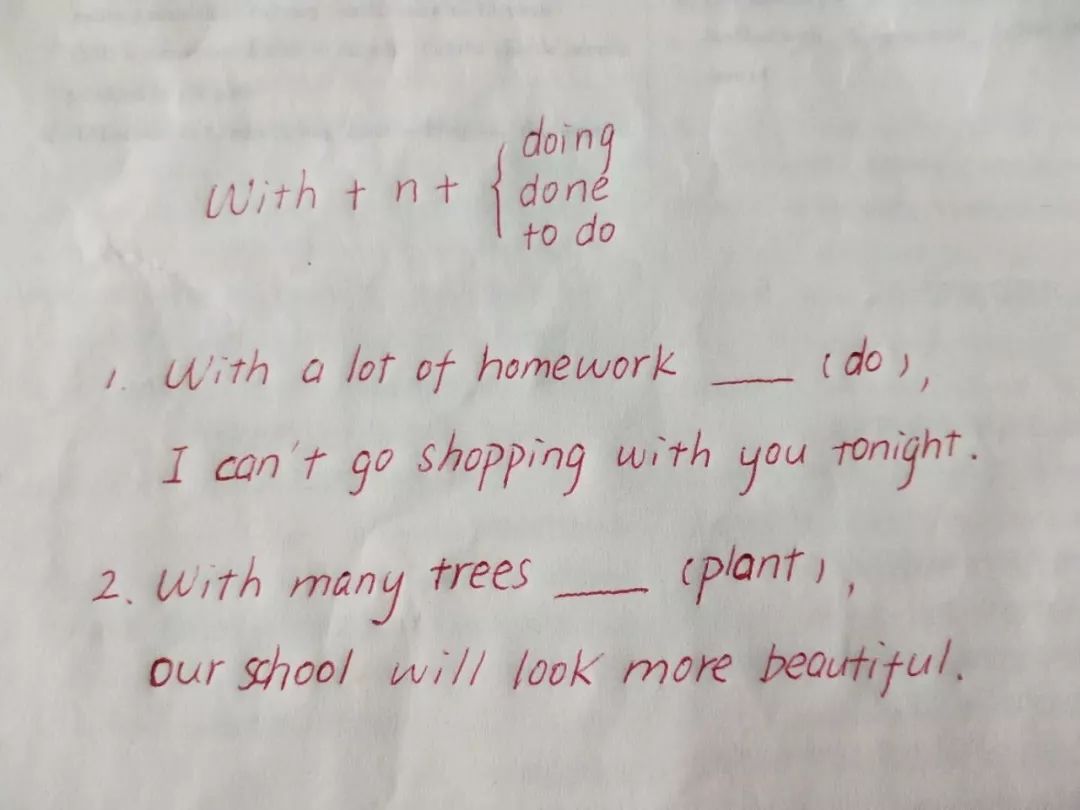 With + n + { doing
done
to do
1. With a lot of homework ___ (do),
I can't go shopping with you tonight.
2. With many trees ___ (plant),
our school will look more beautiful.